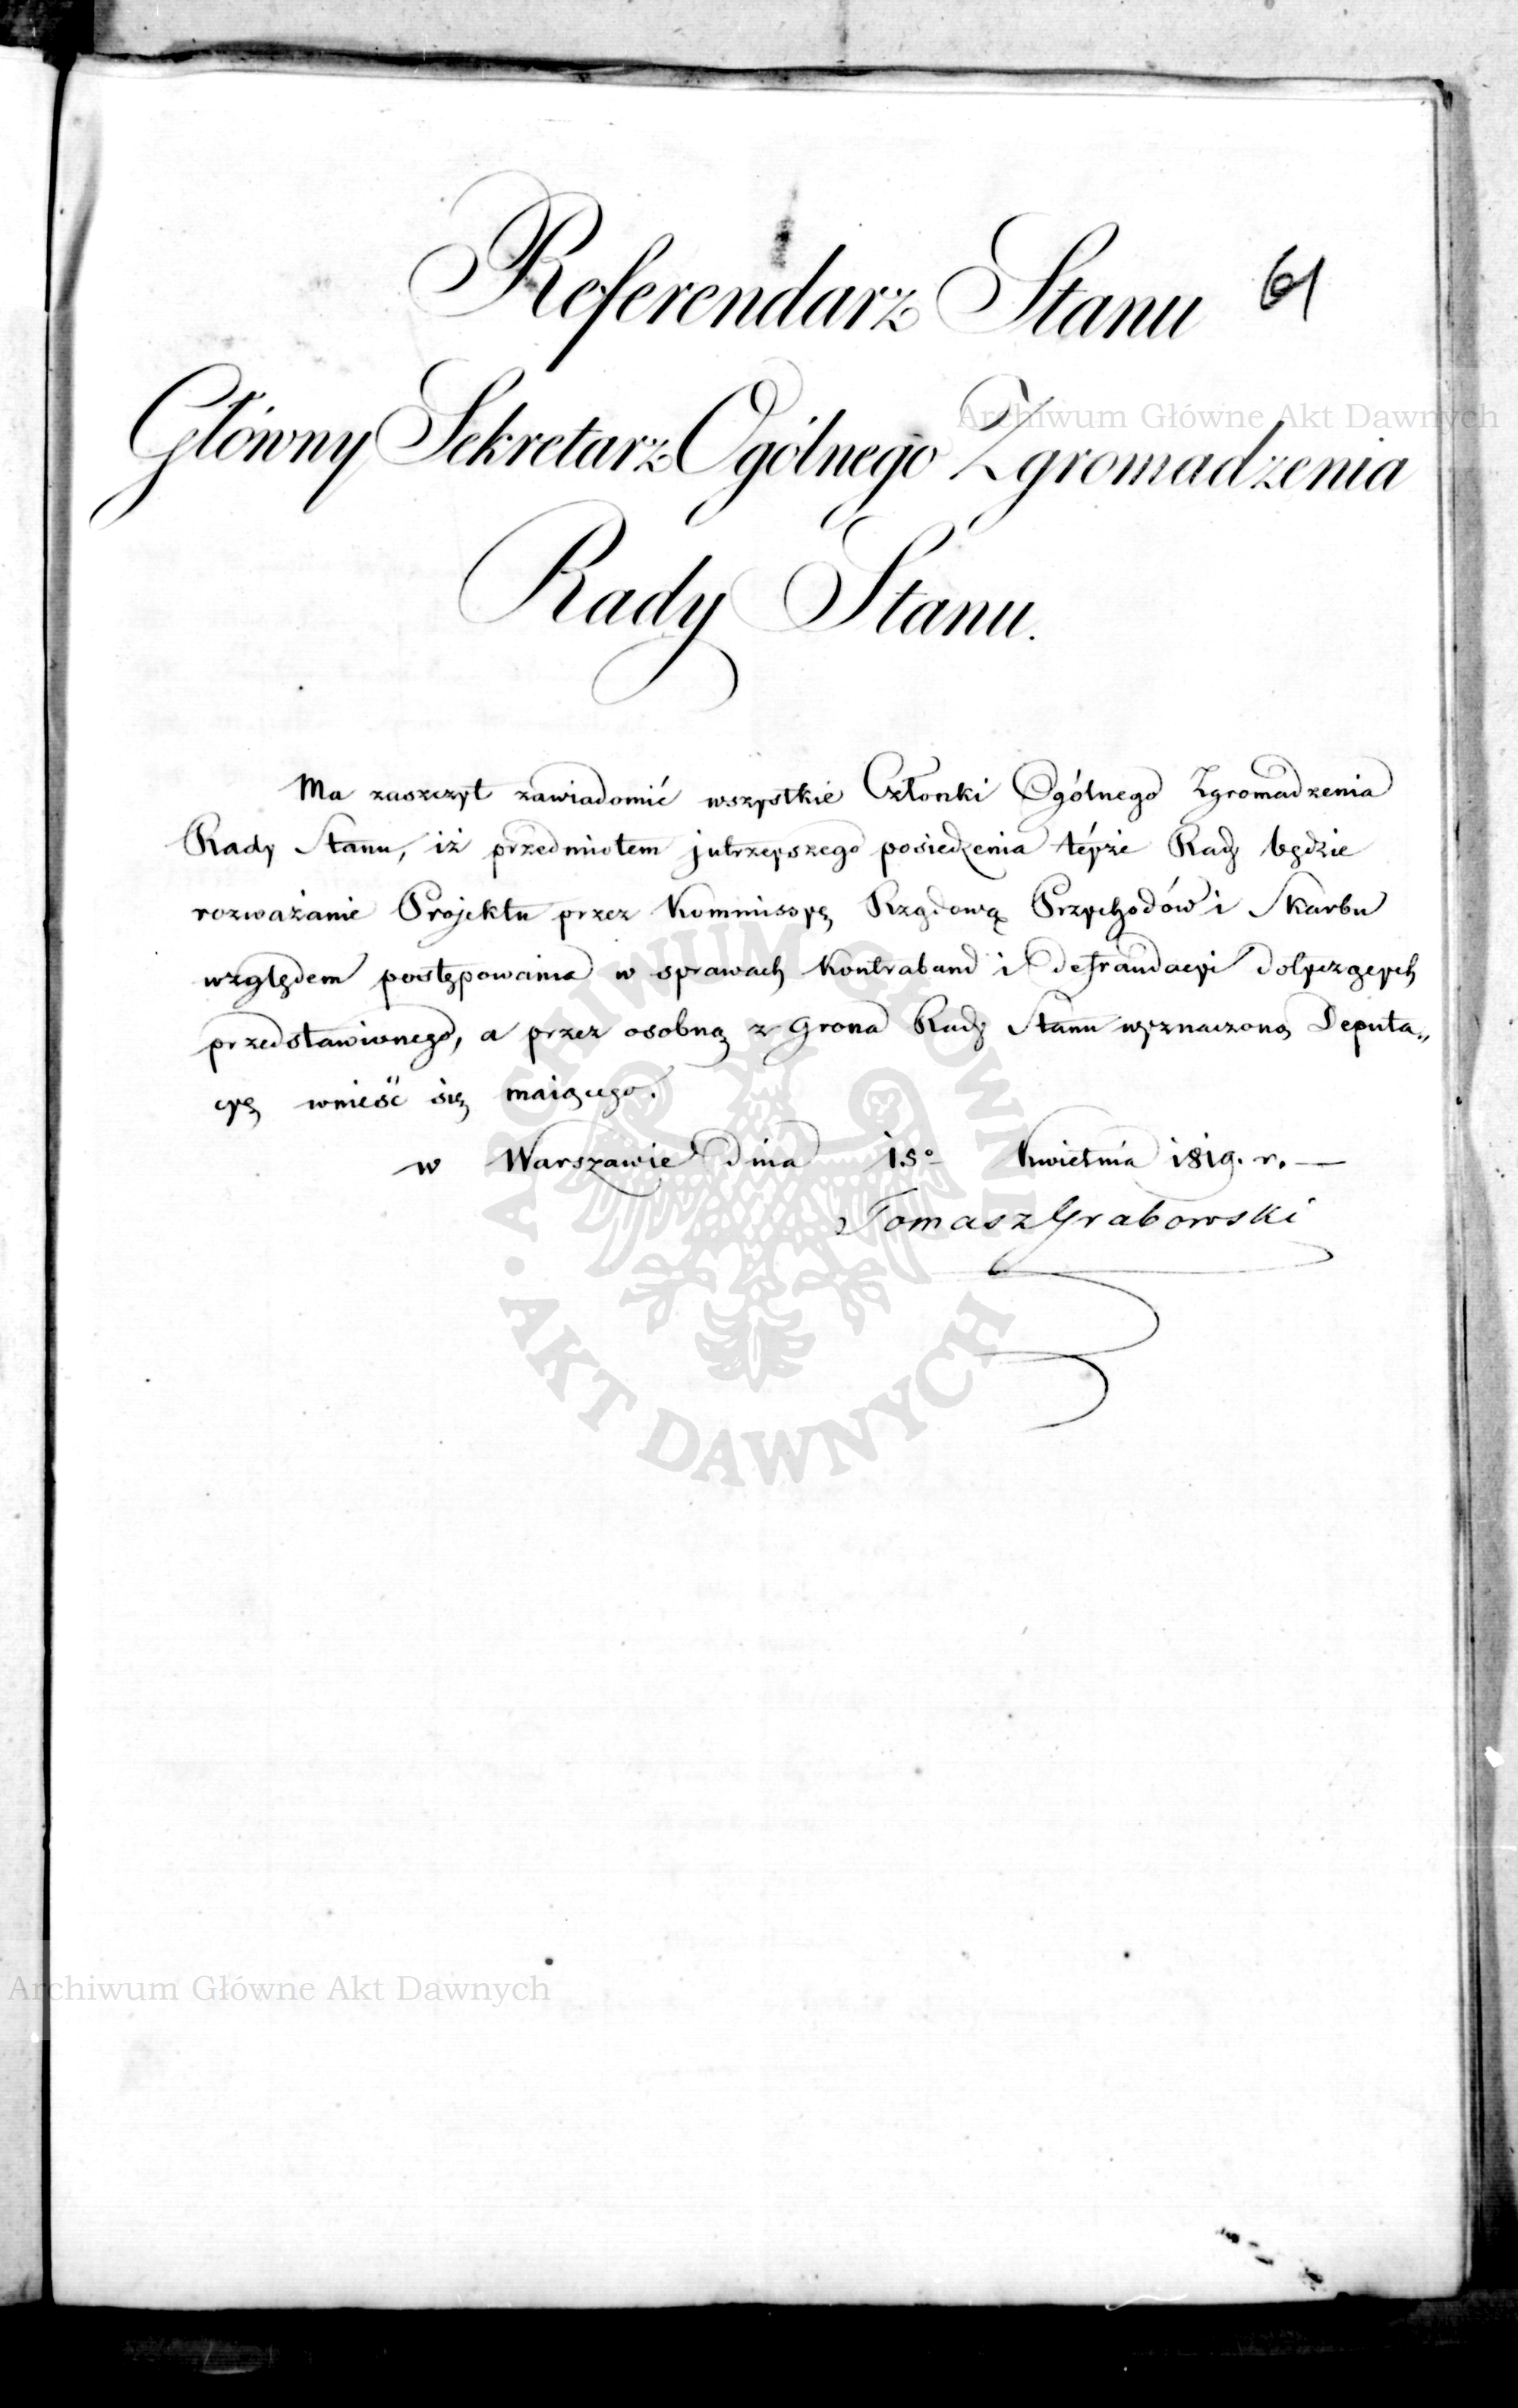 Referendarz Stanu
61
Główny Sekretarz Ogólnego Zgromadzenia
Archiwum Główne Akt Dawnych
Rady Stanu.
Ma zaszczyt zawiadomić wszystkie Członki Ogólnego Zgromadzenia
Rady Stanu, iż przedmiotem jutrzeyszego posiedzenia téyże Rady będzie
rozważanie Projektu przez Kommissyę Rządową Przychodów i Skarbu
względem postępowania w sprawach kontraband i defraudacyi dotyczących
przedstawionego, a przez osobną z grona Rady Stanu wyznaczoną Deputa„
cyę wnieść się maiącego.
w Warszawie dnia 15º Kwietnia 1819. r. —
Tomasz Grabowski
ARCHIWUM GŁÓWNE • AKT DAWNYCH
Archiwum Główne Akt Dawnych